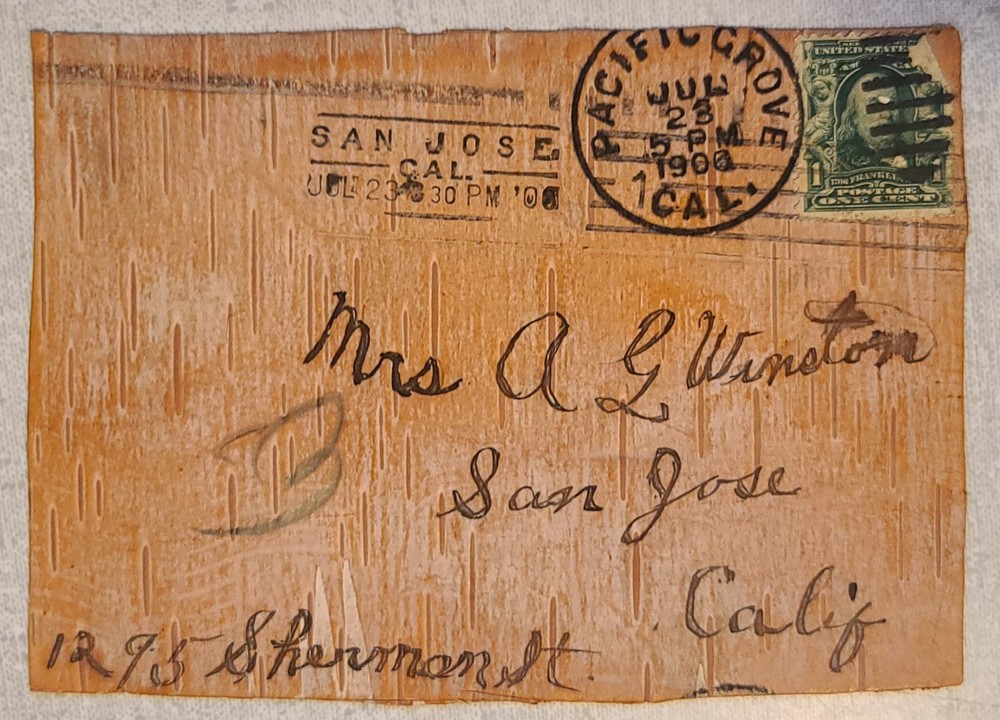 PACIFIC GROVE
JUL
23
5 PM
1906
CAL.
SAN JOSE
CAL.
JUL 23 8 30 PM '06
UNITED STATES
OF AMERICA
1
BENJ. FRANKLIN
POSTAGE
ONE CENT
Mrs A G Winston
San Jose
Calif
1295 Sherman St.